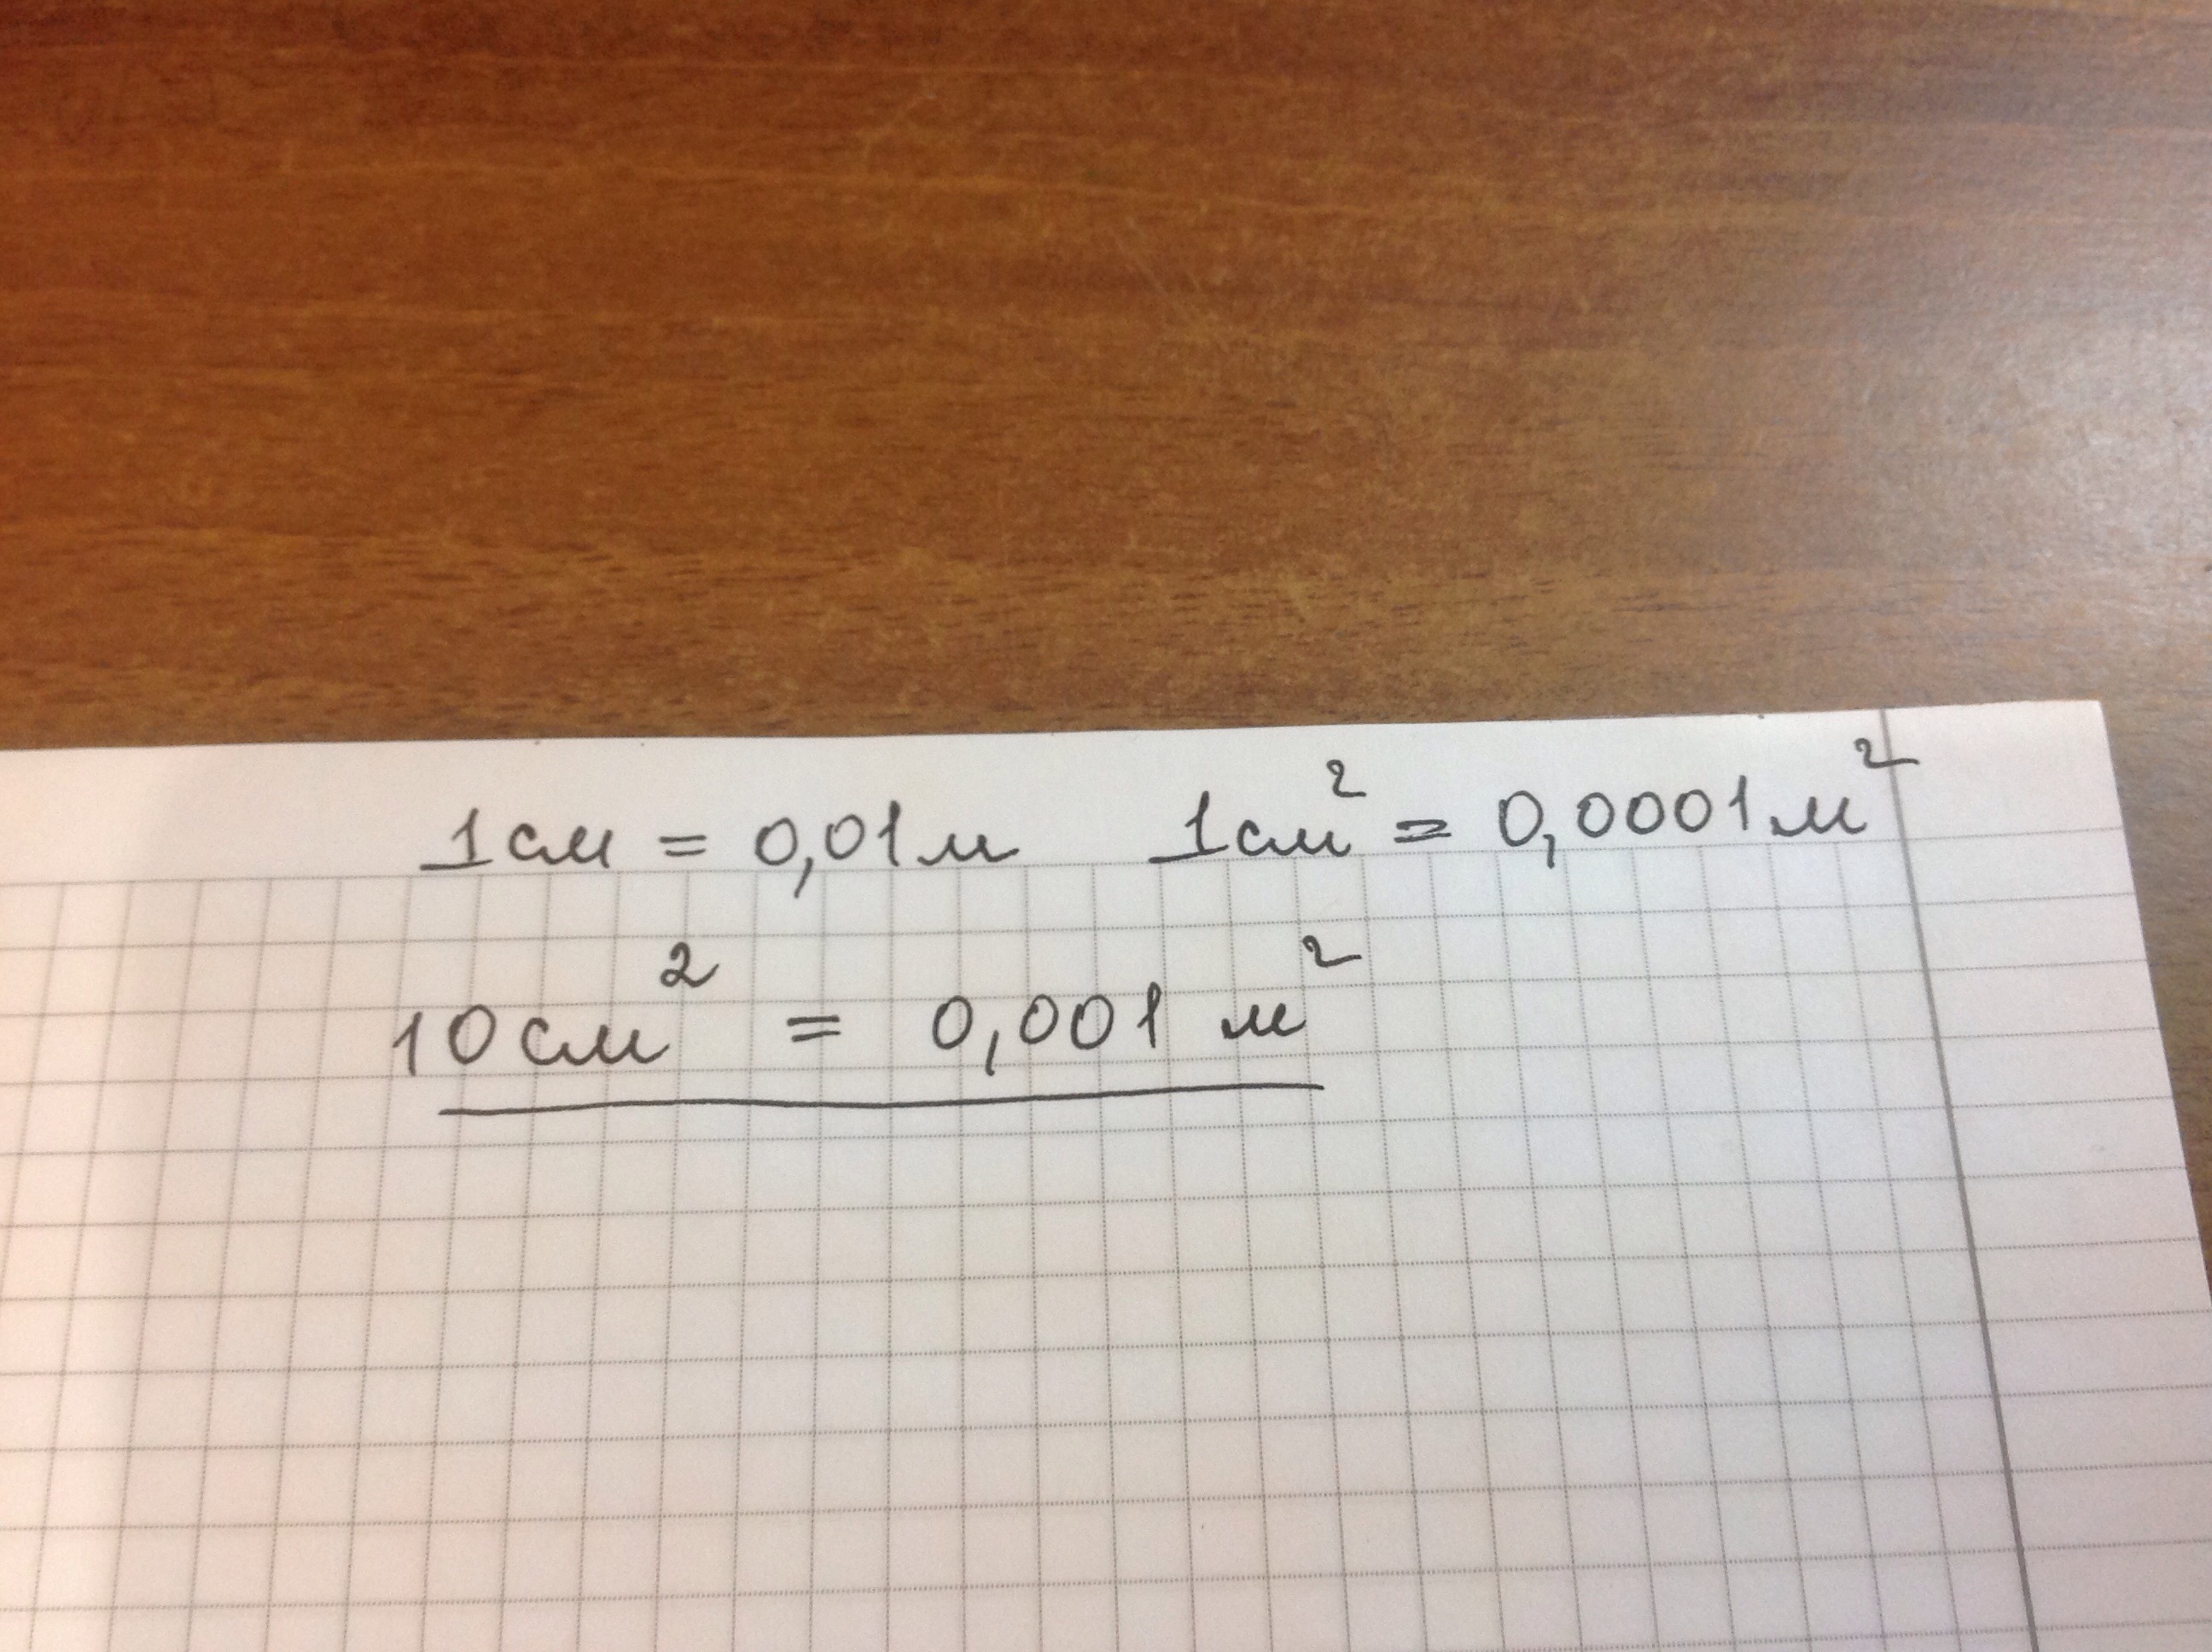 1см = 0,01м 1см² = 0,0001м²
10см² = 0,001 м²